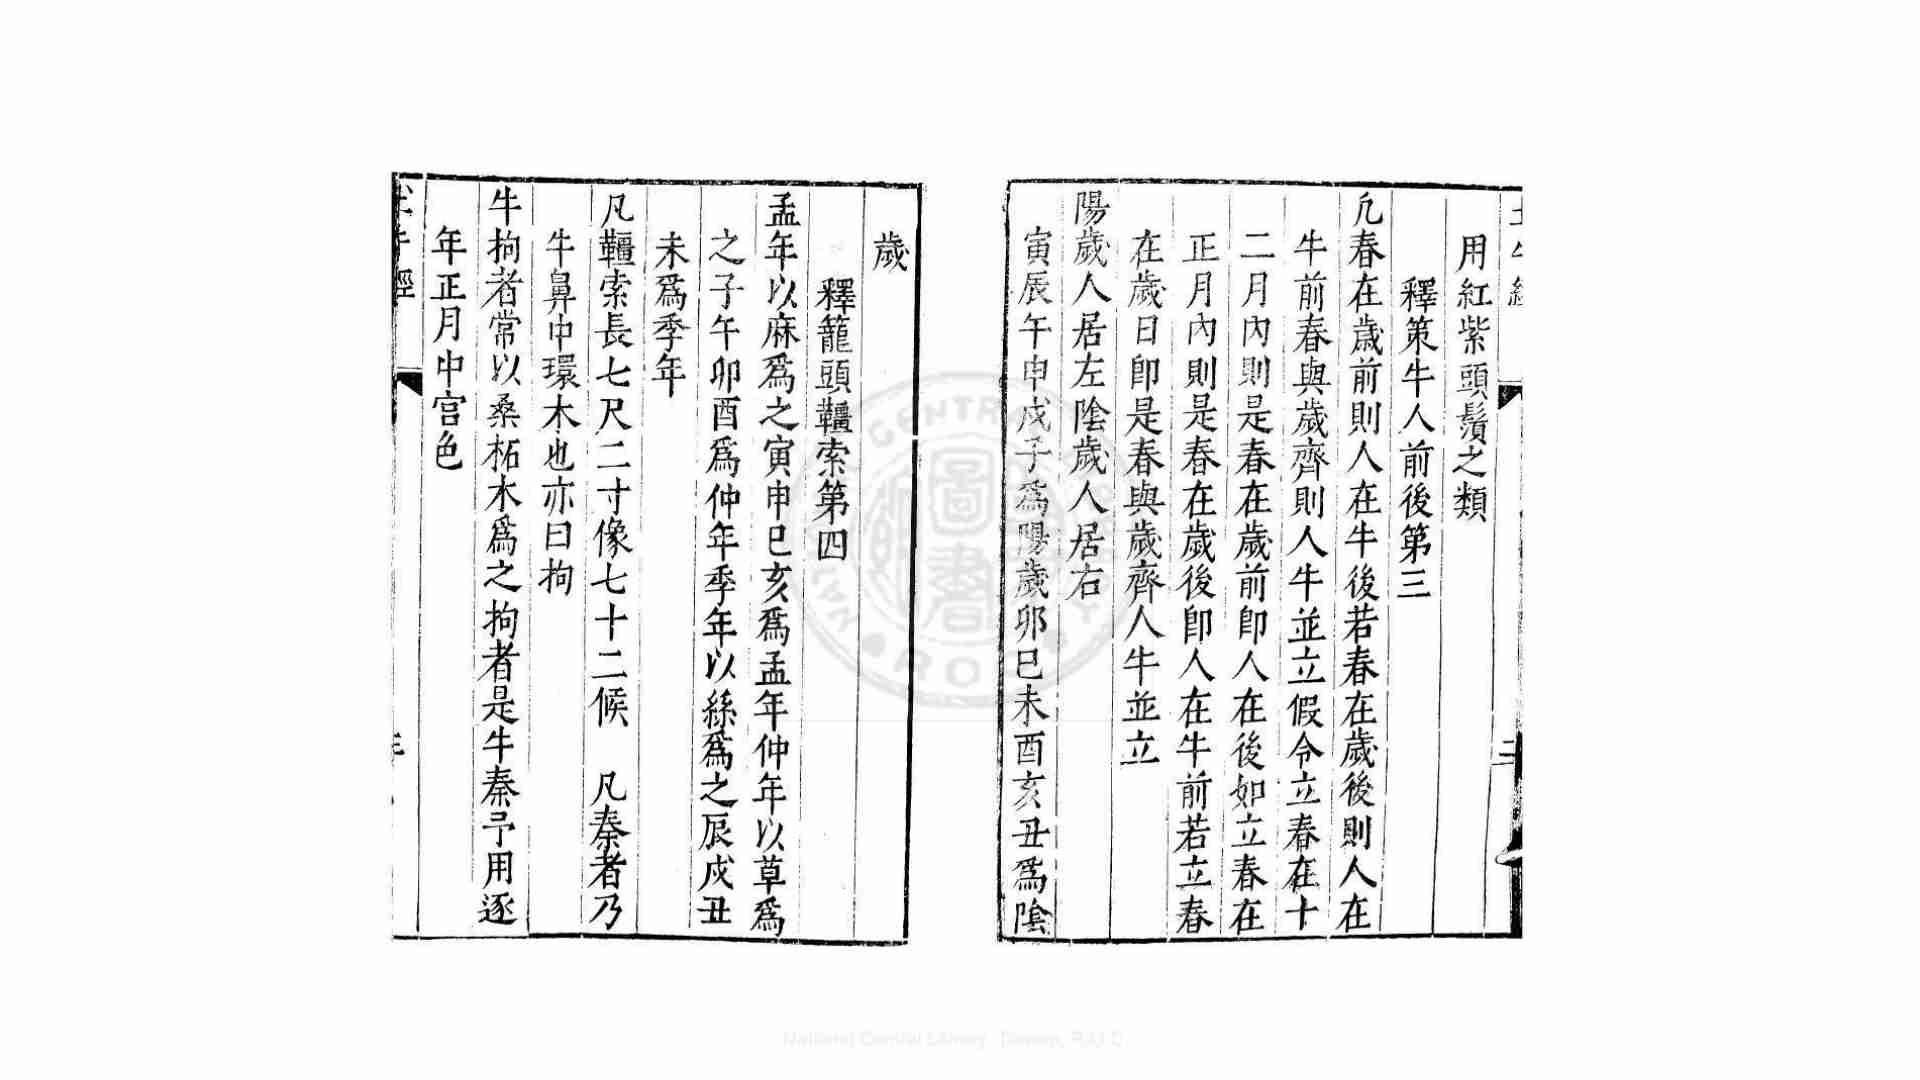 用紅紫頭鬚之類
釋策牛人前後第三
凢春在歲前則人在牛後若春在歲後則人在
牛前春與歲齊則人牛並立假令立春在十
二月內則是春在歲前卽人在後如立春在
正月內則是春在歲後卽人在牛前若立春
在歲日卽是春與歲齊人牛並立
陽歲人居左陰歲人居右
寅辰午申戌子為陽歲卯巳未酉亥丑爲陰
歲
釋籠頭韁索第四
孟年以麻爲之寅申巳亥爲孟年仲年以草爲
之子午卯酉爲仲年季年以絲爲之辰戌丑
未爲季年
凡韁索長七尺二寸像七十二候　凡秦者乃
牛鼻中環木也亦曰拘
牛拘者常以桑柘木爲之拘者是牛秦予用逐
年正月中宮色
土牛經
CENTRA
圖書
ROC
National Central Library, Taiwan, R.O.C